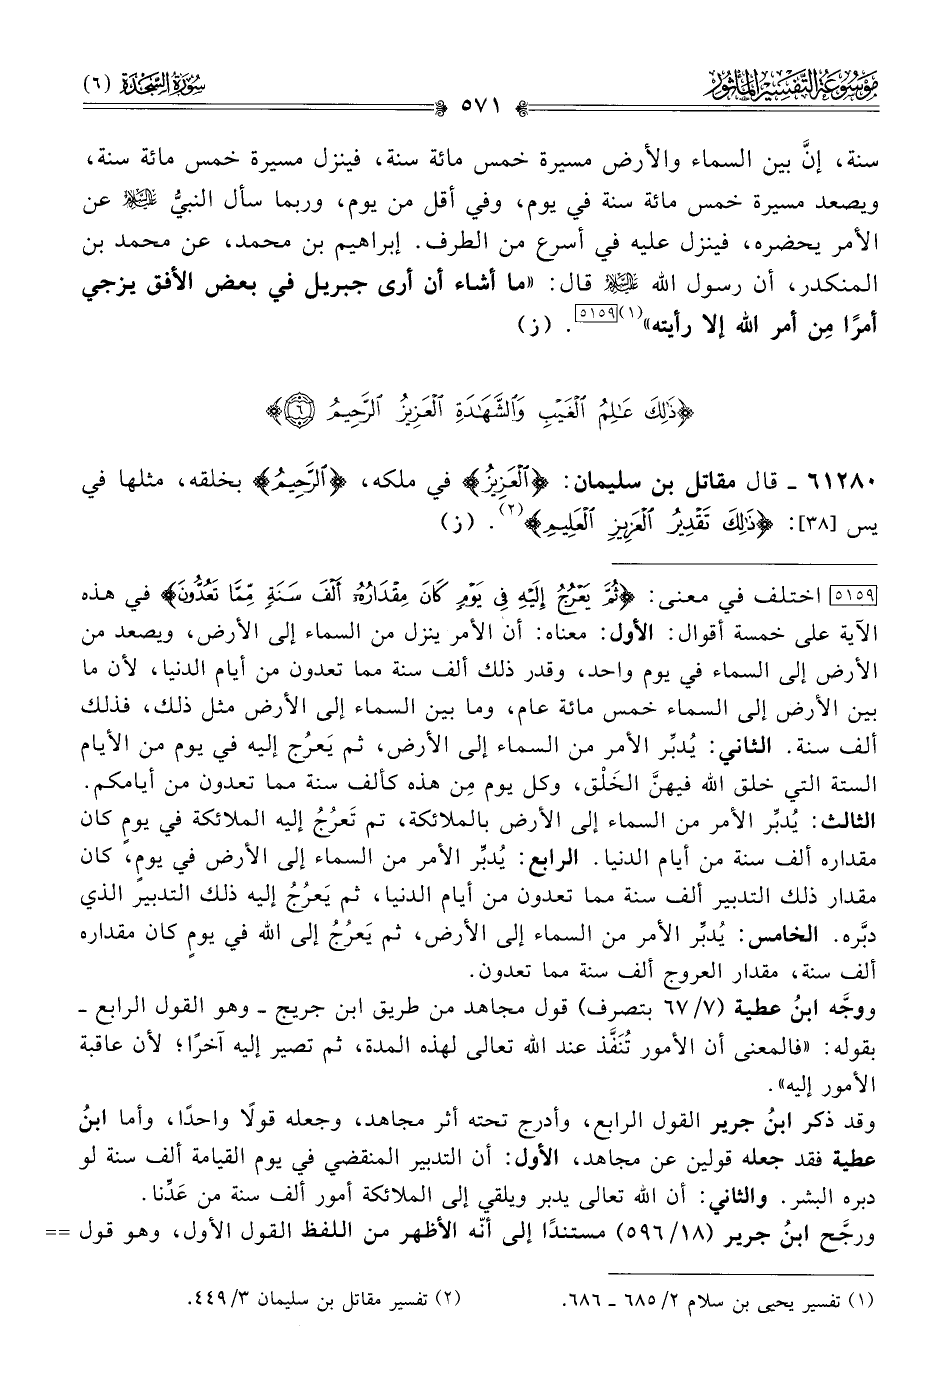 موسوعة التفسير المأثور
سورة السجدة (٦)
٥٧١
سنة، إنَّ بين السماء والأرض مسيرة خمس مائة سنة، فينزل مسيرة خمس مائة سنة،
ويصعد مسيرة خمس مائة سنة في يوم، وفي أقل من يوم، وربما سأل النبيُّ ﷺ عن
الأمر يحضره، فينزل عليه في أسرع من الطرف. إبراهيم بن محمد، عن محمد بن
المنكدر، أن رسول الله ﷺ قال: «ما أشاء أن أرى جبريل في بعض الأفق يزجي
أمرًا مِن أمر الله إلا رأيته»(١)[٥١٥٩]. (ز)
﴿ذَٰلِكَ عَٰلِمُ ٱلۡغَيۡبِ وَٱلشَّهَٰدَةِ ٱلۡعَزِيزُ ٱلرَّحِيمُ ٦﴾
٦١٢٨٠ ـ قال مقاتل بن سليمان: ﴿ٱلۡعَزِيزُ﴾ في ملكه، ﴿ٱلرَّحِيمُ﴾ بخلقه، مثلها في
يس [٣٨]: ﴿ذَٰلِكَ تَقۡدِيرُ ٱلۡعَزِيزِ ٱلۡعَلِيمِ﴾(٢). (ز)
[٥١٥٩] اختلف في معنى: ﴿ثُمَّ يَعۡرُجُ إِلَيۡهِ فِي يَوۡمٖ كَانَ مِقۡدَارُهُۥٓ أَلۡفَ سَنَةٖ مِّمَّا تَعُدُّونَ﴾ في هذه
الآية على خمسة أقوال: الأول: معناه: أن الأمر ينزل من السماء إلى الأرض، ويصعد من
الأرض إلى السماء في يوم واحد، وقدر ذلك ألف سنة مما تعدون من أيام الدنيا، لأن ما
بين الأرض إلى السماء خمس مائة عام، وما بين السماء إلى الأرض مثل ذلك، فذلك
ألف سنة. الثاني: يُدبِّر الأمر من السماء إلى الأرض، ثم يَعرُج إليه في يوم من الأيام
الستة التي خلق الله فيهنَّ الخَلْق، وكل يوم مِن هذه كألف سنة مما تعدون من أيامكم.
الثالث: يُدبِّر الأمر من السماء إلى الأرض بالملائكة، ثم تَعرُجُ إليه الملائكة في يومٍ كان
مقداره ألف سنة من أيام الدنيا. الرابع: يُدبِّر الأمر من السماء إلى الأرض في يومٍ، كان
مقدار ذلك التدبير ألف سنة مما تعدون من أيام الدنيا، ثم يَعرُجُ إليه ذلك التدبير الذي
دبَّره. الخامس: يُدبِّر الأمر من السماء إلى الأرض، ثم يَعرُجُ إلى الله في يومٍ كان مقداره
ألف سنة، مقدار العروج ألف سنة مما تعدون.
ووجَّه ابنُ عطية (٧/ ٦٧ بتصرف) قول مجاهد من طريق ابن جريج ـ وهو القول الرابع ـ
بقوله: «فالمعنى أن الأمور تُنَفَّذ عند الله تعالى لهذه المدة، ثم تصير إليه آخرًا؛ لأن عاقبة
الأمور إليه».
وقد ذكر ابنُ جرير القول الرابع، وأدرج تحته أثر مجاهد، وجعله قولًا واحدًا، وأما ابنُ
عطية فقد جعله قولين عن مجاهد، الأول: أن التدبير المنقضي في يوم القيامة ألف سنة لو
دبره البشر. والثاني: أن الله تعالى يدبر ويلقي إلى الملائكة أمور ألف سنة من عَدِّنا.
ورجَّح ابنُ جرير (١٨/ ٥٩٦) مستندًا إلى أنّه الأظهر من اللفظ القول الأول، وهو قول ==
(١) تفسير يحيى بن سلام ٢/ ٦٨٥ ـ ٦٨٦.
(٢) تفسير مقاتل بن سليمان ٣/ ٤٤٩.